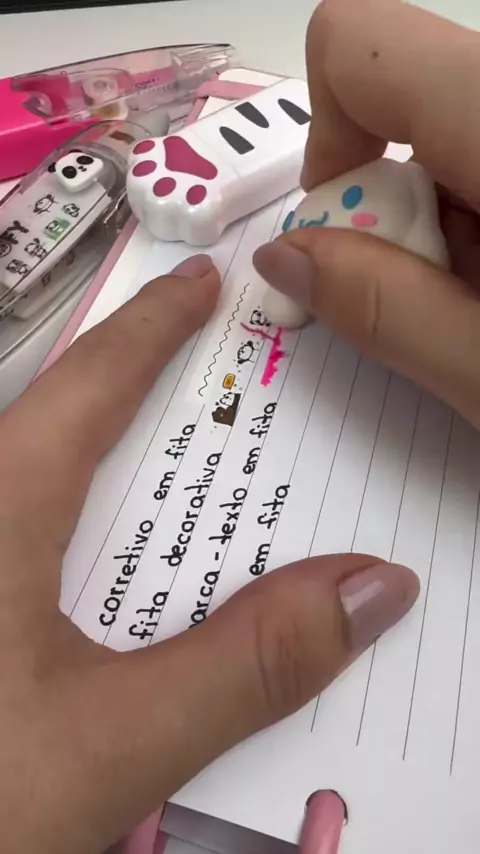 corretivo em fita
fita decorativa
arca-texto em fita
em fita